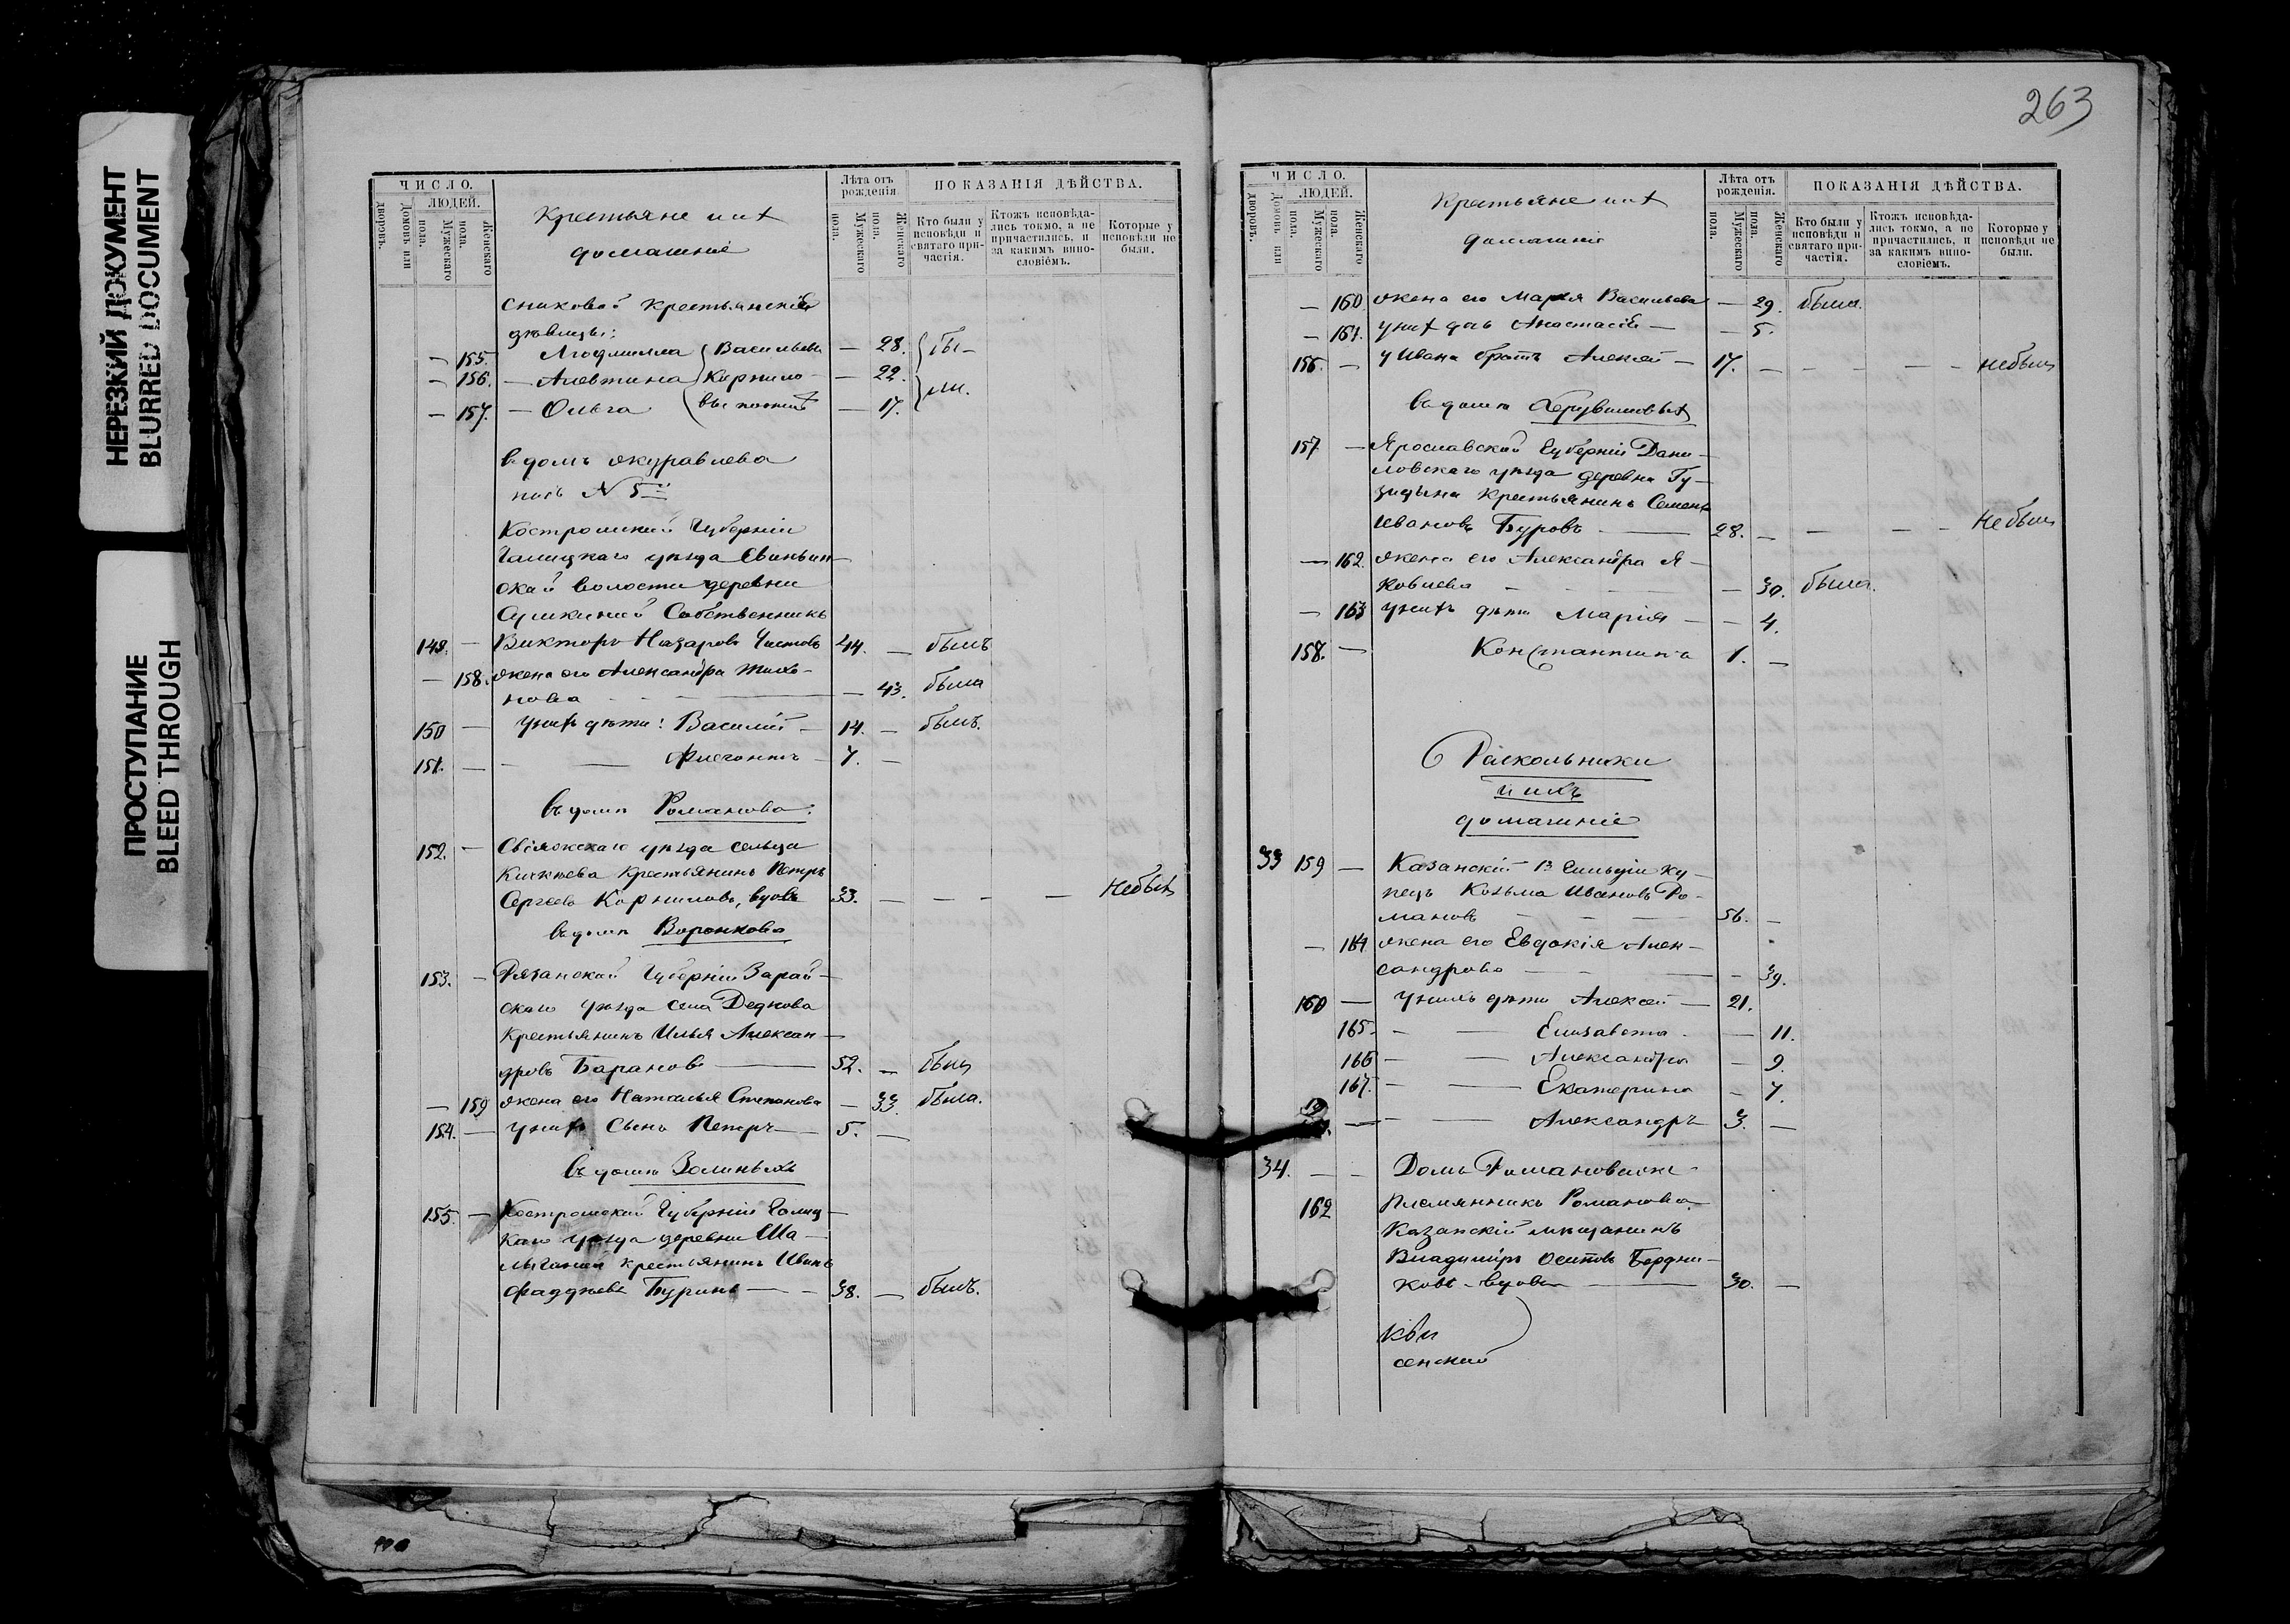 НЕРЕЗКИЙ ДОКУМЕНТ
BLURRED DOCUMENT
ПРОСТУПАНИЕ
BLEED THROUGH
ЧИСЛО.
ЛЮДЕЙ.
Дворовъ.
Домовъ или
Мужескаго пола.
Женскаго пола.
Крестьяне и их
домашніе
Лѣта отъ рожденія
Мужескаго пола.
Женскаго пола.
ПОКАЗАНІЯ ДѢЙСТВА.
Кто были у исповѣди и святаго причастія.
Ктожъ исповѣдались токмо, а не причастились, и за какимъ винословіемъ.
Которые у исповѣди не были.
сниковой крестьянскія
дѣвицы:
— 155. Людмилла Васильевы — 28. бы-
— 156. — Алевтина Корнило- — 22. ли.
— 157. — Ольга — 17.
в домѣ Журавлева
подъ N 5
Костромской Губерніи
Галицкаго уѣзда Свиньин-
ской волости деревни
Собственникъ
149. — Викторъ Назаровъ Чистовъ 44. — былъ
— 158. жена его Александра Тихо-
нова — 43. была
150 — У них дѣти: Василій — 14. — былъ.
151. — — Флегонтъ — 7. —
въ домѣ Романова:
152. — Свіяжскаго уѣзда сельца
Крестьянинъ Петръ
Сергеевъ Корниловъ, вдовъ 33. — — — — Небылъ
въ домѣ Воронкова
153. — Рязанской Губерніи Зарай-
скаго уѣзда села Деднова
Крестьянинъ Илья Алексан-
дровъ Барановъ — 52. — былъ
— 159 жена его Наталья Степанова — 33. была.
154. — У них сынъ Петръ — 5. —
въ домѣ Золиныхъ
155. — Костромской Губерніи Галиц-
каго уѣзда деревни Ша-
крестьянинъ Иванъ
Фаддѣевъ Буринъ — — 38. — былъ.
263
ЧИСЛО.
ЛЮДЕЙ.
Дворовъ.
Домовъ или
Мужескаго пола.
Женскаго пола.
Крестьяне и их
домашніе
Лѣта отъ рожденія.
Мужескаго пола.
Женскаго пола.
ПОКАЗАНІЯ ДѢЙСТВА.
Кто были у исповѣди и святаго причастія.
Ктожъ исповѣдались токмо, а не причастились, и за какимъ винословіемъ.
Которые у исповѣди не были.
— 160 жена его Марья Васильева — 29. была.
— 161. У них дочь Анастасія — — 5.
156. — У Ивана братъ Алексей — 17. — — — — — небылъ
въ домѣ Херувимовых
157 — Ярославской Губерніи Дани-
ловскаго уѣзда деревни Гу-
крестьянинъ Семенъ
Ивановъ Буровъ — 28. — — — — Небылъ
— 162. жена его Александра Я-
ковлева — — 30. была.
— 163 У нихъ дѣти Марія — — 4.
158. — Константинъ 1. —
Раскольники
и ихъ
домашніе
33 159 — Казанскій 2 гильдіи ку-
пецъ Козьма Ивановъ Ро-
мановъ — 56. —
— 164 жена его Евдокія Алек-
сандрова — — 39.
160 — У нихъ дѣти Алексей — 21.
165. — — Елизавета — 11.
166 — — Александра — 9.
167. — — Екатерина — 7.
— — Александръ 3. —
34. — — Домъ Романовыхъ
162 Племянникъ Романова
Казанскій мѣщанинъ
Владиміръ Осиповъ Бордни-
ковъ — вдовъ — 30. —